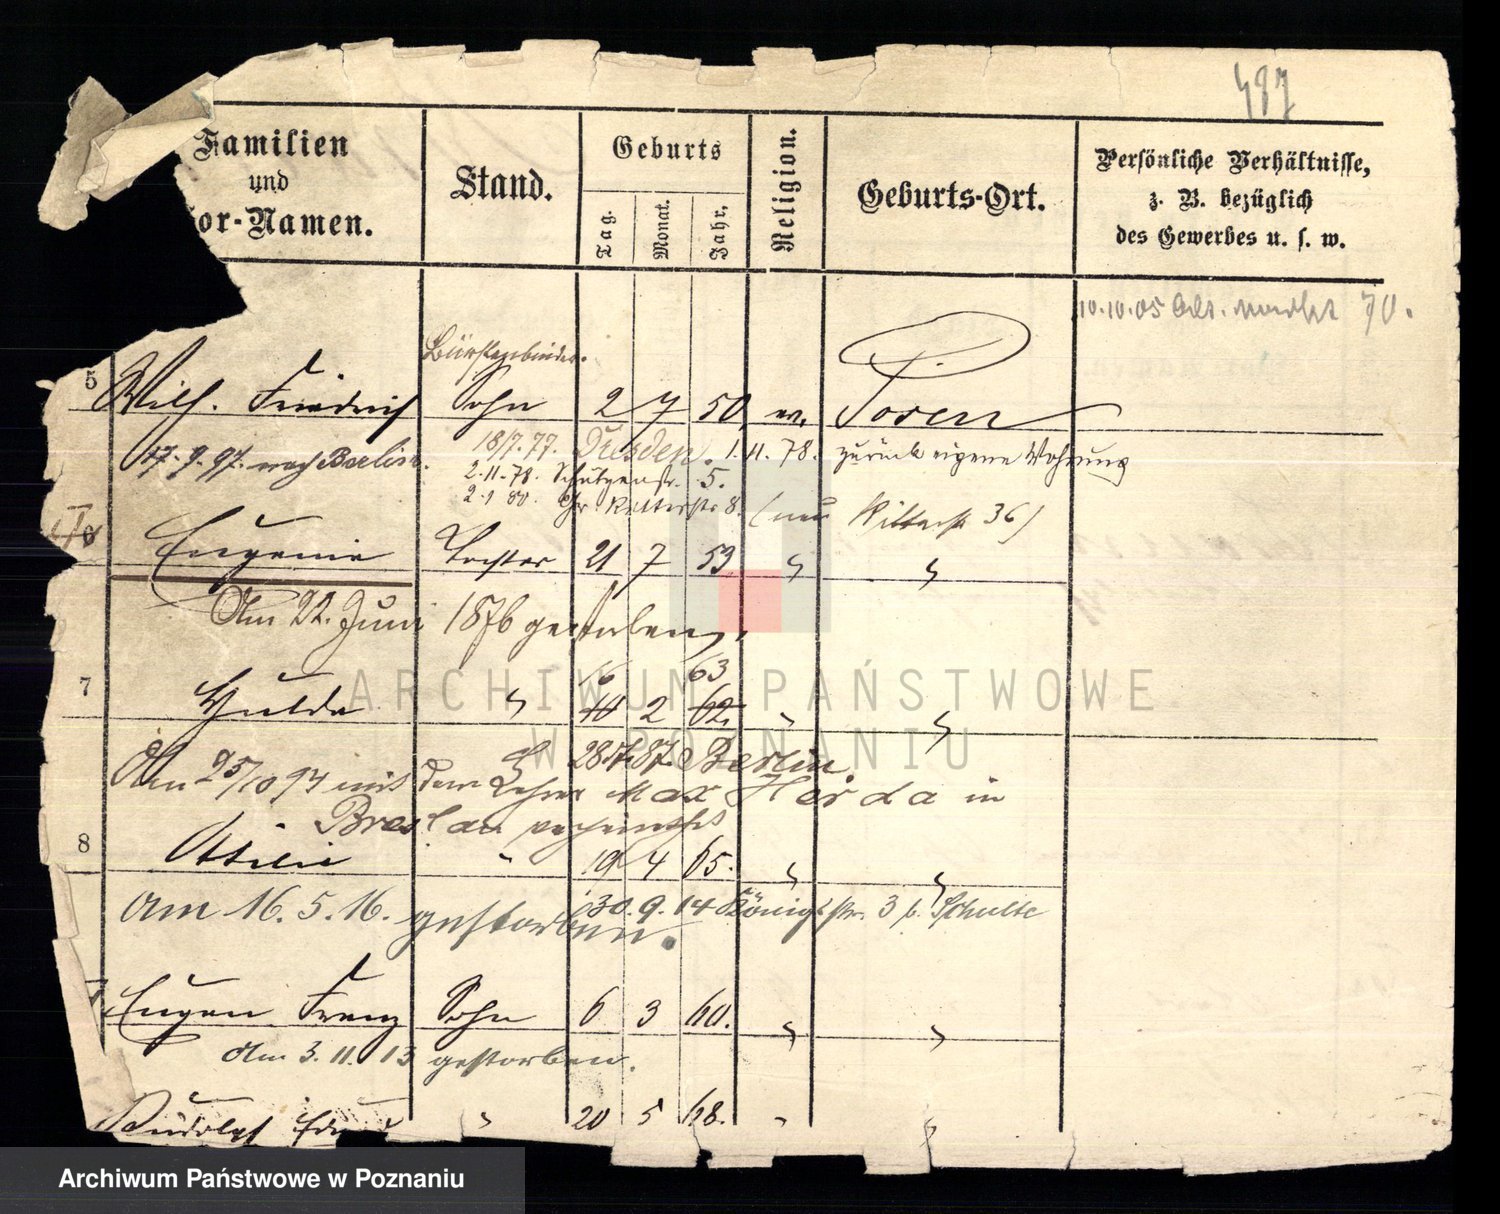 497
Familien
und
Vor-Namen.
Stand.
Geburts
Tag.
Monat.
Jahr.
Religion.
Geburts-Ort.
Persönliche Verhältnisse,
z. B. bezüglich
des Gewerbes u. s. w.
10.10.05 70.
Bürstenbinder.
5 Wilh. Friedrich Sohn 2 7 50 ev. Posen
17.9.97. nach Berlin.
18/7.77. Dresden. 1.11.78. zurück eigene Wohnung
2.11.78. Schützenstr. 5.
2.1 80. Gr. Ritterstr 8. (neu Ritterstr 36)
6 Eugenie Tochter 21 7 53 " "
Am 22. Juni 1876 gestorben.
16 63
7 Hulda " 10 2 62. " "
28.7.87. Berlin.
Am 25/10 94 mit dem Lehrer Max Horda in
Breslau verheirathet
8 Ottilie " 19 4 65. " "
30.9.14 Königstr. 3 b. Schulte
am 16.5.16. gestorben.
Eugen Franz Sohn 6 3 60. " "
Am 3.11.13 gestorben.
Rudolph 20 5 68. " "
ARCHIWUM PAŃSTWOWE
W POZNANIU
Archiwum Państwowe w Poznaniu